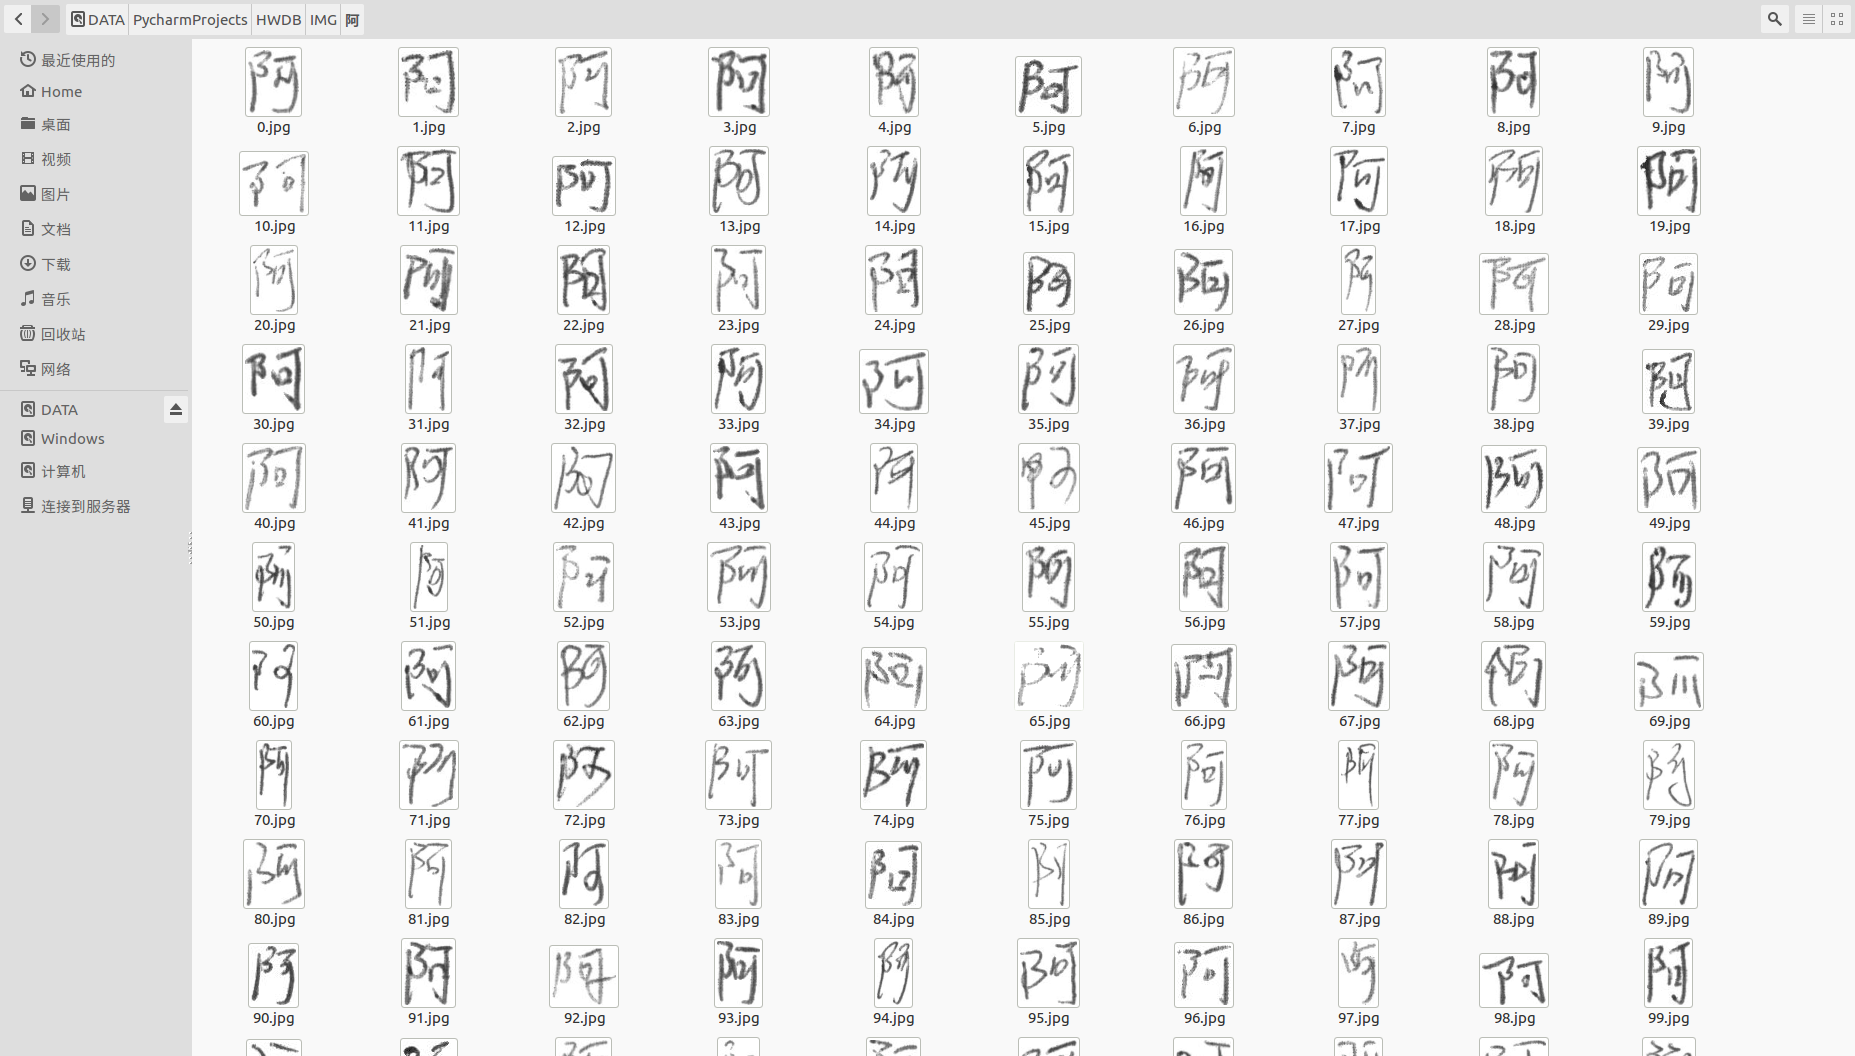 DATA PycharmProjects HWDB IMG 阿
最近使用的
Home
桌面
视频
图片
文档
下载
音乐
回收站
网络
DATA
Windows
计算机
连接到服务器
阿 阿 阿 阿 阿 阿 阿 阿 阿 阿
0.jpg 1.jpg 2.jpg 3.jpg 4.jpg 5.jpg 6.jpg 7.jpg 8.jpg 9.jpg
阿 阿 阿 阿 阿 阿 阿 阿 阿 阿
10.jpg 11.jpg 12.jpg 13.jpg 14.jpg 15.jpg 16.jpg 17.jpg 18.jpg 19.jpg
阿 阿 阿 阿 阿 阿 阿 阿 阿 阿
20.jpg 21.jpg 22.jpg 23.jpg 24.jpg 25.jpg 26.jpg 27.jpg 28.jpg 29.jpg
阿 阿 阿 阿 阿 阿 阿 阿 阿 阿
30.jpg 31.jpg 32.jpg 33.jpg 34.jpg 35.jpg 36.jpg 37.jpg 38.jpg 39.jpg
阿 阿 阿 阿 阿 阿 阿 阿 阿 阿
40.jpg 41.jpg 42.jpg 43.jpg 44.jpg 45.jpg 46.jpg 47.jpg 48.jpg 49.jpg
阿 阿 阿 阿 阿 阿 阿 阿 阿 阿
50.jpg 51.jpg 52.jpg 53.jpg 54.jpg 55.jpg 56.jpg 57.jpg 58.jpg 59.jpg
阿 阿 阿 阿 阿 阿 阿 阿 阿 阿
60.jpg 61.jpg 62.jpg 63.jpg 64.jpg 65.jpg 66.jpg 67.jpg 68.jpg 69.jpg
阿 阿 阿 阿 阿 阿 阿 阿 阿 阿
70.jpg 71.jpg 72.jpg 73.jpg 74.jpg 75.jpg 76.jpg 77.jpg 78.jpg 79.jpg
阿 阿 阿 阿 阿 阿 阿 阿 阿 阿
80.jpg 81.jpg 82.jpg 83.jpg 84.jpg 85.jpg 86.jpg 87.jpg 88.jpg 89.jpg
阿 阿 阿 阿 阿 阿 阿 阿 阿 阿
90.jpg 91.jpg 92.jpg 93.jpg 94.jpg 95.jpg 96.jpg 97.jpg 98.jpg 99.jpg